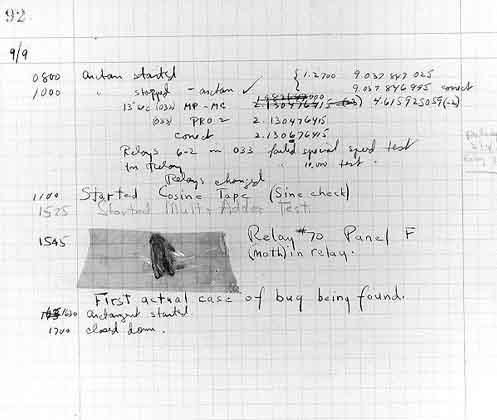 92
9/9
0800 Antan started
1000 " stopped - antan ✓ { 1.2700 9.037 847 025
9.037 846 995 correct
13"uc (032) MP-MC 2.130476415 4.615925059(-2)
(033) PRO 2 2.130476415
correct 2.130676415
Relays 6-2 in 033 failed special speed test
in Relay " 10,000 test.
Relays changed
1100 Started Cosine Tape (Sine check)
1525 Started Mult+Adder Test.
1545 Relay #70 Panel F
(Moth) in relay.
First actual case of bug being found.
1630 antangent started
1700 closed down.